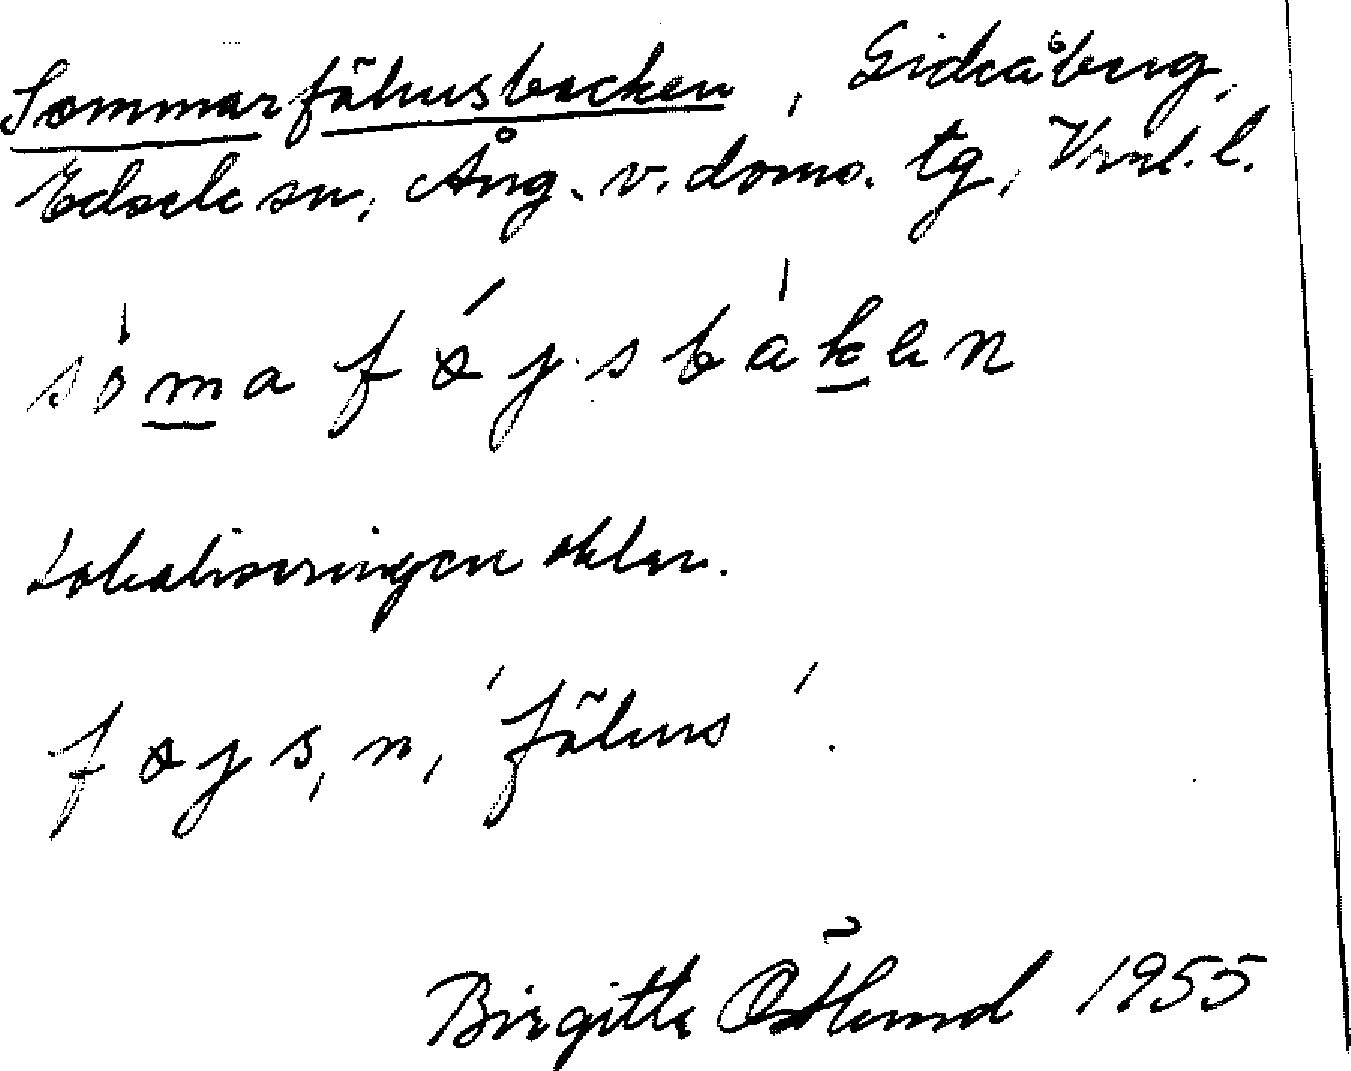 Sommarfähusbacken, Gideåberg,
Edsele sn, Ång. v. doms. tg, Vnl. l.
sòmaføysbákan
Lokaliseringen oklar.
føys, n, 'fähus'.
Birgitta Östlund 1955